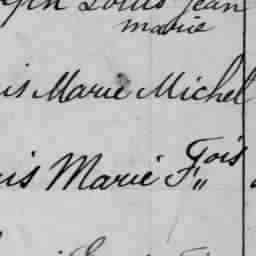 Louis Jean
marie
is Marie Michel
uis Marie F„ois